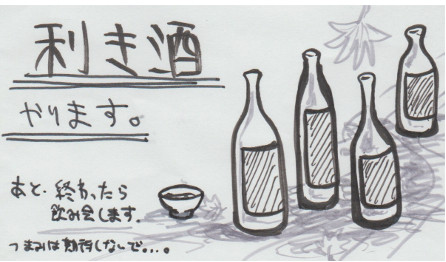 利き酒
やります。
あと、終わったら
飲み会します。
つまみは期待しないで...。